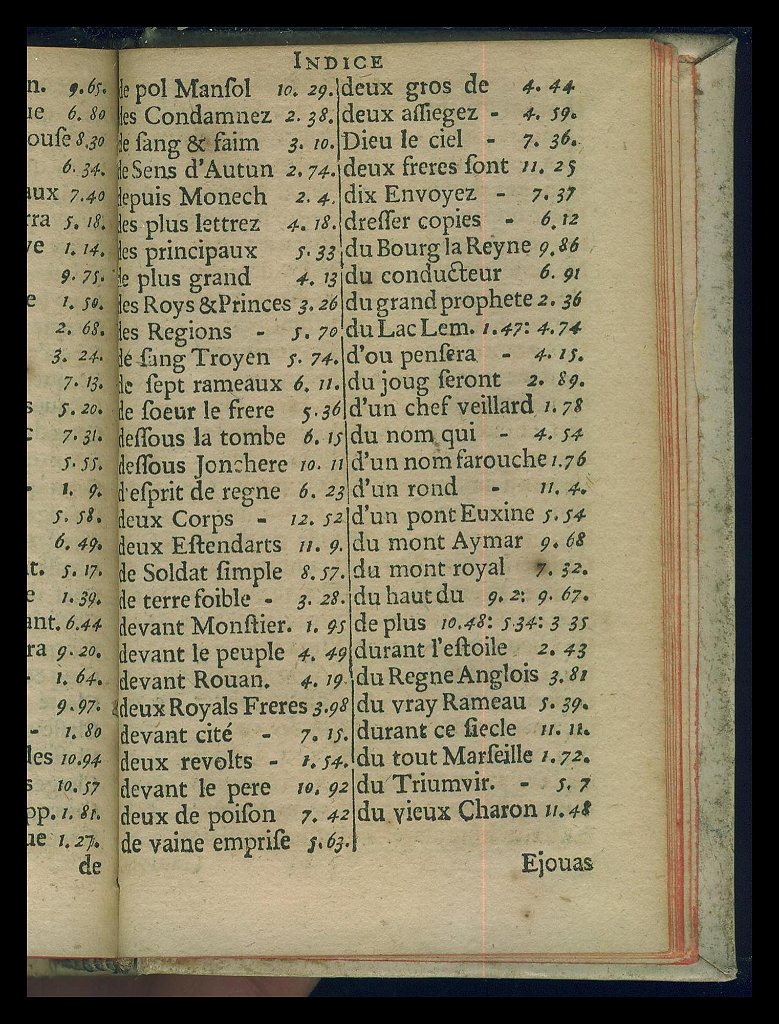 INDICE
n. 9.65.
ue 6. 80
ouſe 8.30
6. 34.
aux 7.40
rra 5. 18.
ve 1. 14.
9. 75.
e 1. 50.
2. 68.
3. 24.
7. 13.
s 5. 20.
7. 31.
5. 55.
- 1. 9.
5. 58.
6. 49.
t. 5. 17.
e 1. 39.
ant. 6.44
ra 9. 20.
- 1. 64.
9. 97.
- 1. 80
les 10.94
s 10.57
pp. 1. 81.
ue 1. 27.
de
de pol Manſol 10. 29.
les Condamnez 2. 38.
le ſang & faim 3. 10.
de Sens d'Autun 2. 74.
depuis Monech 2. 4.
les plus lettrez 4. 18.
les principaux 5. 33
le plus grand 4. 13
les Roys &Princes 3. 26
les Regions - 5. 70
de ſang Troyen 5. 74.
de ſept rameaux 6. 11.
de ſoeur le frere 5.36
deſſous la tombe 6. 15
deſſous Jonchere 10. 11
d'eſprit de regne 6. 23
deux Corps - 12. 52
deux Eſtendarts 11. 9.
de Soldat ſimple 8. 57.
de terre foible - 3. 28.
devant Monſtier. 1. 95
devant le peuple 4. 49
devant Rouan. 4. 19
deux Royals Freres 3.98
devant cité - 7. 15.
deux revolts - 1. 54.
devant le pere 10. 92
deux de poiſon 7. 42
de vaine empriſe 5.63.
deux gros de 4. 44
deux aſſiegez - 4. 59.
Dieu le ciel - 7. 36.
deux freres ſont 11. 25
dix Envoyez - 7. 37
dreſſer copies - 6, 12
du Bourg la Reyne 9. 86
du conducteur 6. 91
du grand prophete 2. 36
du Lac Lem. 1.47: 4.74
d'ou penſera - 4. 15.
du joug ſeront 2. 89.
d'un chef veillard 1. 78
du nom qui - 4. 54
d'un nom farouche 1.76
d'un rond - 11. 4.
d'un pont Euxine 5.54
du mont Aymar 9. 68
du mont royal 7. 32.
du haut du 9. 2: 9. 67.
de plus 10.48: 5 34: 3 35
durant l'eſtoile 2. 43
du Regne Anglois 3.81
du vray Rameau 5. 39.
durant ce ſiecle 11. 11.
du tout Marſeille 1.72.
du Triumvir. - 5. 7
du vieux Charon 11.48
Ejouas